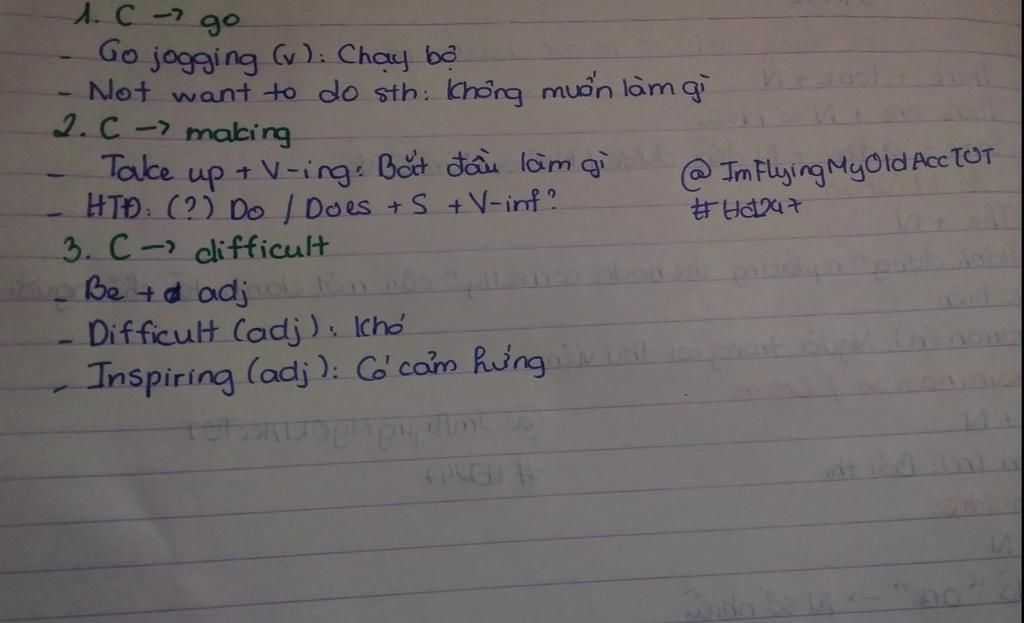 1. C → go
- Go jogging (v): Chạy bộ
- Not want to do sth: Không muốn làm gì
2. C → making
- Take up + V-ing: Bắt đầu làm gì
- HTĐ: (?) Do / Does + S + V-inf?
@ImFlyingMyOldAccTOT
#Hd247
3. C → difficult
- Be + adj
- Difficult (adj): Khó
- Inspiring (adj): Có cảm hứng